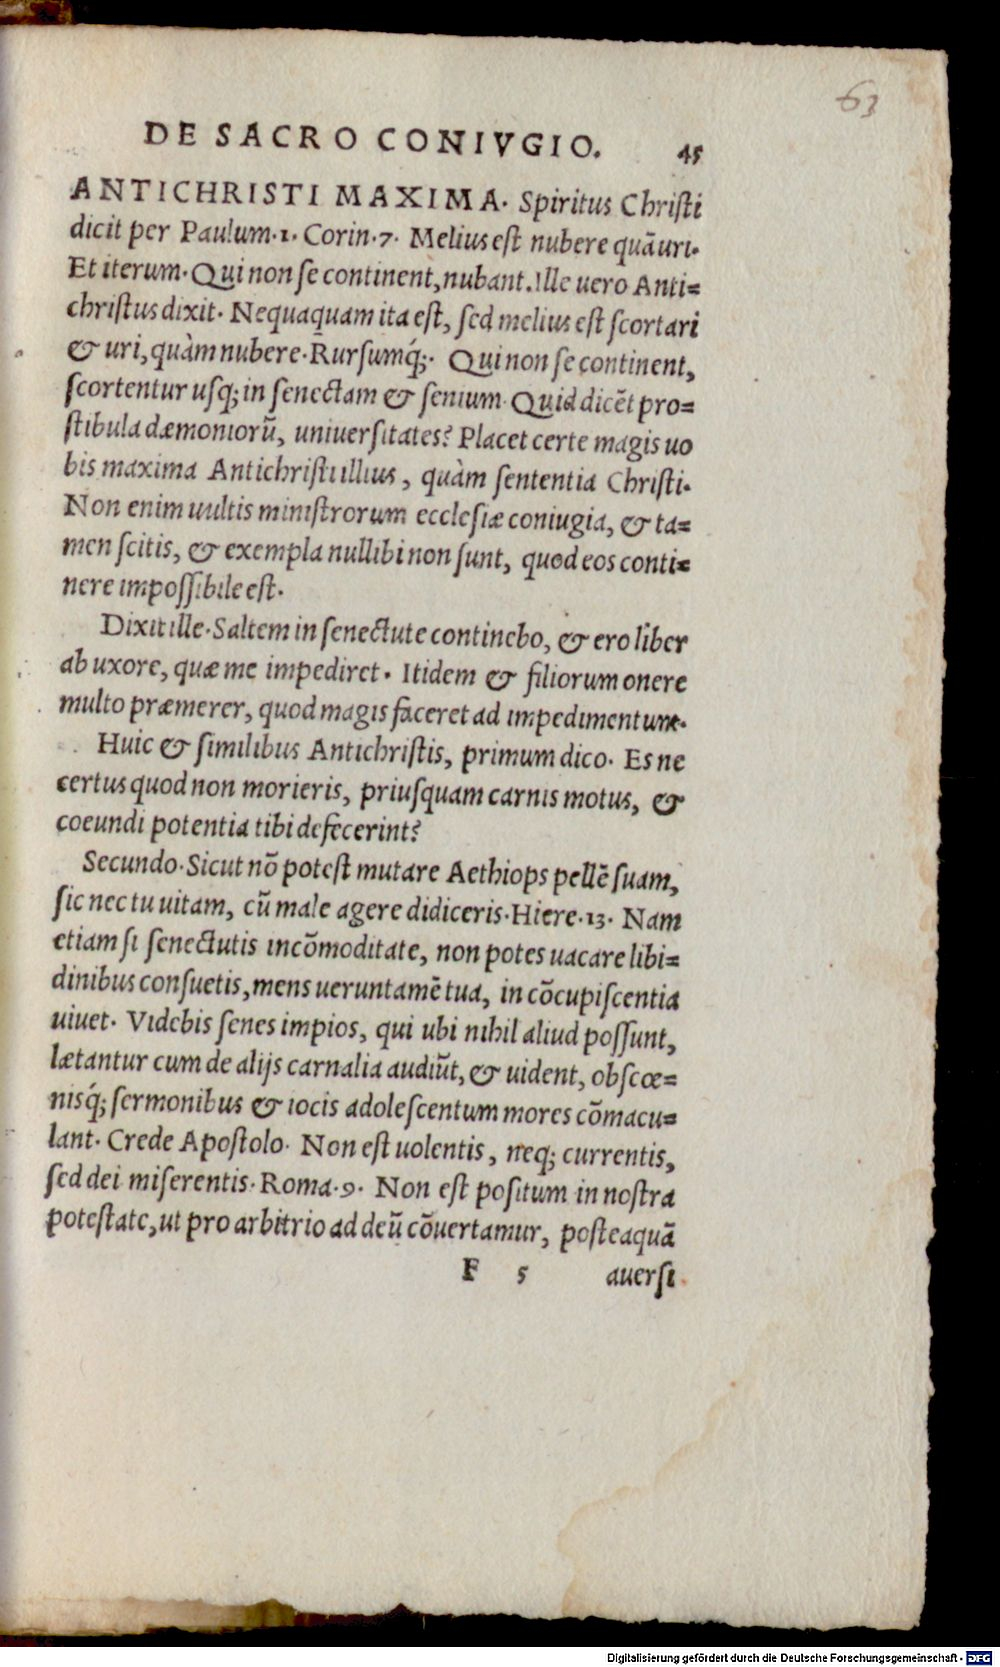 63
DE SACRO CONIVGIO. 45
ANTICHRISTI MAXIMA. Spiritus Christi
dicit per Paulum.1. Corin.7. Melius est nubere quā uri.
Et iterum. Qui non se continent, nubant. Ille uero Anti=
christus dixit. Nequaquam ita est, sed melius est scortari
& uri, quàm nubere. Rursumq́;. Qui non se continent,
scortentur usq; in senectam & senium. Quid dicēt pro=
stibula dæmoniorū, uniuersitates? Placet certe magis uo
bis maxima Antichristi illius, quàm sententia Christi.
Non enim uultis ministrorum ecclesiæ coniugia, & ta=
men scitis, & exempla nullibi non sunt, quod eos conti=
nere impossibile est.
Dixit ille. Saltem in senectute continebo, & ero liber
ab uxore, quæ me impediret. Itidem & filiorum onere
multo præmerer, quod magis faceret ad impedimentum.
Huic & similibus Antichristis, primum dico. Es ne
certus quod non morieris, priusquam carnis motus, &
coeundi potentia tibi defecerint?
Secundo. Sicut nō potest mutare Aethiops pellē suam,
sic nec tu uitam, cū male agere didiceris. Hiere.13. Nam
etiam si senectutis incōmoditate, non potes uacare libi=
dinibus consuetis, mens ueruntamē tua, in cōcupiscentia
uiuet. Videbis senes impios, qui ubi nihil aliud possunt,
lætantur cum de alijs carnalia audiūt, & uident, obscœ=
nisq́; sermonibus & iocis adolescentum mores cōmacu=
lant. Crede Apostolo. Non est uolentis, neq; currentis,
sed dei miserentis. Roma.9. Non est positum in nostra
potestate, ut pro arbitrio ad deū cōuertamur, posteaquā
F 5 auersi
Digitalisierung gefördert durch die Deutsche Forschungsgemeinschaft - DFG